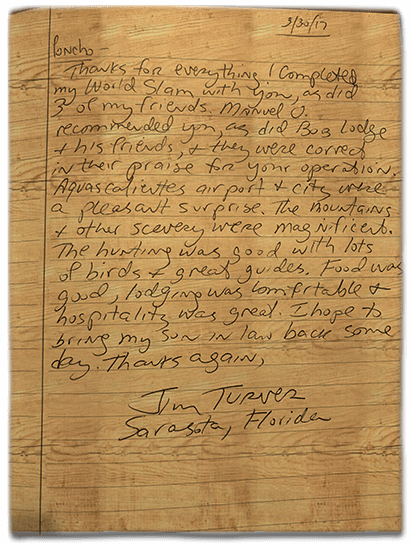 3/30/17
Poncho -
Thanks for everything I Completed
my World Slam with you, as did
3 of my friends. Manuel O.
recommended you, as did Bob Lodge
+ his friends, + they were correct
in their praise for your operation.
Aguascalientes airport + city were
a pleasant surprise. The mountains
+ other scenery were magnificent.
The hunting was good with lots
of birds + great guides. Food was
good, lodging was comfortable +
hospitality was great. I hope to
bring my son in law back some
day. Thanks again,
Jim Turner
Sarasota, Florida